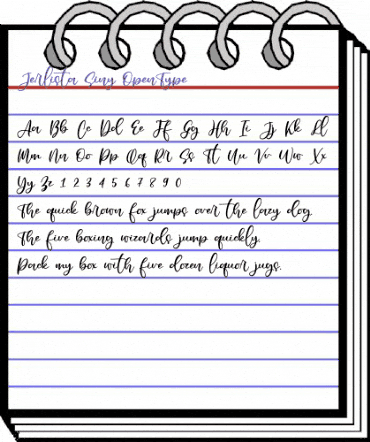 Jerlista Siny OpenType
Aa Bb Cc Dd Ee Ff Gg Hh Ii Jj Kk Ll
Mm Nn Oo Pp Qq Rr Ss Tt Uu Vv Ww Xx
Yy Zz 1 2 3 4 5 6 7 8 9 0
The quick brown fox jumps over the lazy dog.
The five boxing wizards jump quickly.
Pack my box with five dozen liquor jugs.